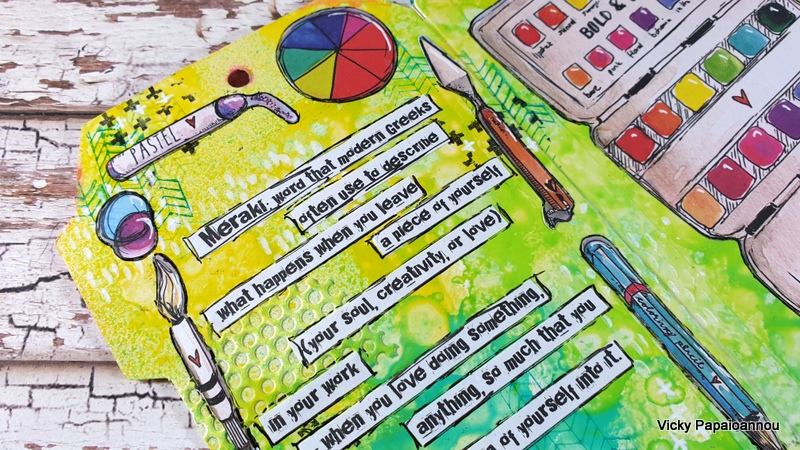 PASTEL
BOLD &
Meraki: word that modern Greeks
often use to describe
what happens when you leave
a piece of yourself
(your soul, creativity, or love)
in your work
when you love doing something,
anything, so much that you
of yourself into it.
Vicky Papaioannou